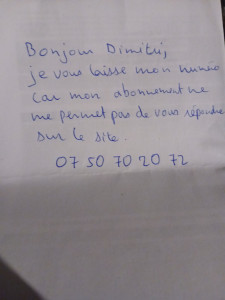 Bonjour Dimitri,
je vous laisse mon numéro
car mon abonnement ne
me permet pas de vous répondre
sur le site.
07 50 70 20 72